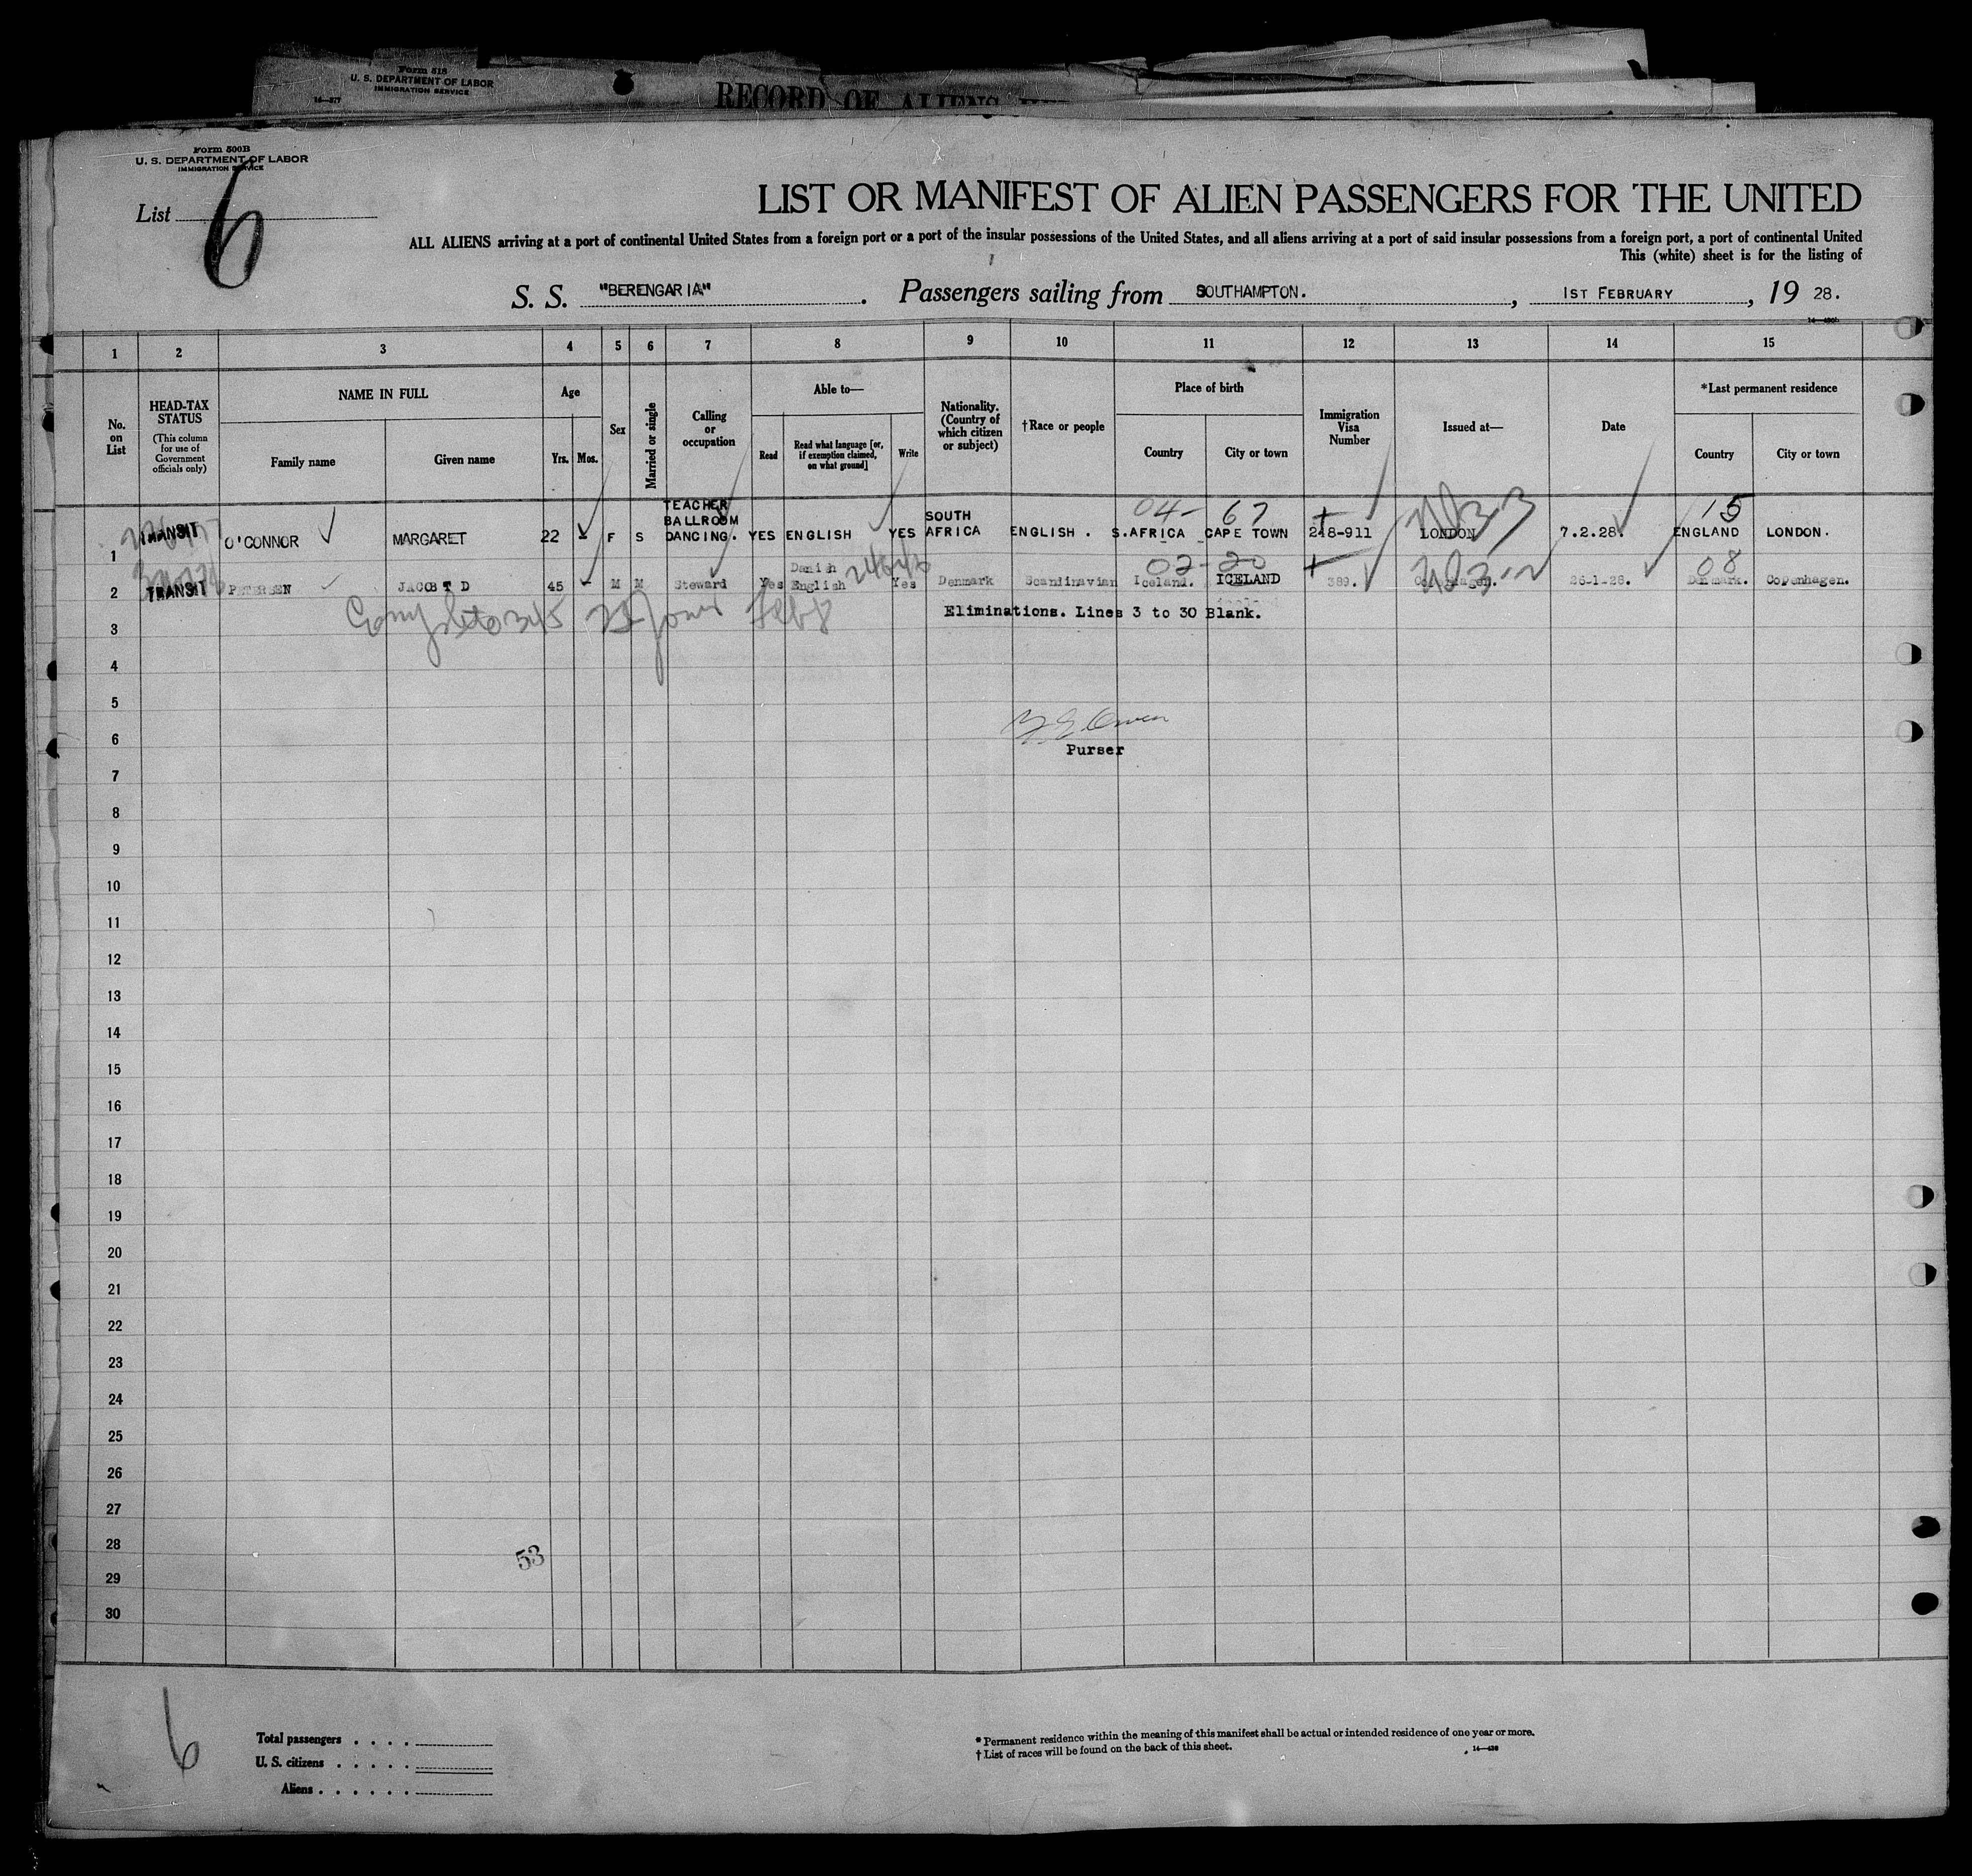 Form 518
U. S. DEPARTMENT OF LABOR
IMMIGRATION SERVICE
14—377
RECORD OF ALIENS
Form 500B
U. S. DEPARTMENT OF LABOR
IMMIGRATION SERVICE
List 6
LIST OR MANIFEST OF ALIEN PASSENGERS FOR THE UNITED
ALL ALIENS arriving at a port of continental United States from a foreign port or a port of the insular possessions of the United States, and all aliens arriving at a port of said insular possessions from a foreign port, a port of continental United
This (white) sheet is for the listing of
S. S. "BERENGARIA" . Passengers sailing from SOUTHAMPTON. , 1ST FEBRUARY , 19 28.
1 2 3 4 5 6 7 8 9 10 11 12 13 14 15
No. on List
HEAD-TAX STATUS
(This column for use of Government officials only)
NAME IN FULL
Family name Given name
Age
Yrs. Mos.
Sex
Married or single
Calling or occupation
Able to—
Read
Read what language [or, if exemption claimed, on what ground]
Write
Nationality. (Country of which citizen or subject)
†Race or people
Place of birth
Country City or town
Immigration Visa Number
Issued at—
Date
*Last permanent residence
Country City or town
04- 67 15
1 TRANSIT O'CONNOR MARGARET 22 - F S TEACHER BALLROOM DANCING. YES ENGLISH YES SOUTH AFRICA ENGLISH. S.AFRICA CAPE TOWN 248-911 LONDON 7.2.28. ENGLAND LONDON.
02-20 08
2 TRANSIT PETERSEN JACOB T D 45 - M M Steward Yes Danish English Yes Denmark Scandinavian Iceland. ICELAND 389. Copenhagen. 26-1-28. Denmark. Copenhagen.
Eliminations. Lines 3 to 30 Blank.
3
4
5
6
Purser
7
8
9
10
11
12
13
14
15
16
17
18
19
20
21
22
23
24
25
26
27
28
53
29
30
6
Total passengers . . . .
U. S. citizens . . . . .
Aliens . . . . . .
* Permanent residence within the meaning of this manifest shall be actual or intended residence of one year or more.
† List of races will be found on the back of this sheet.